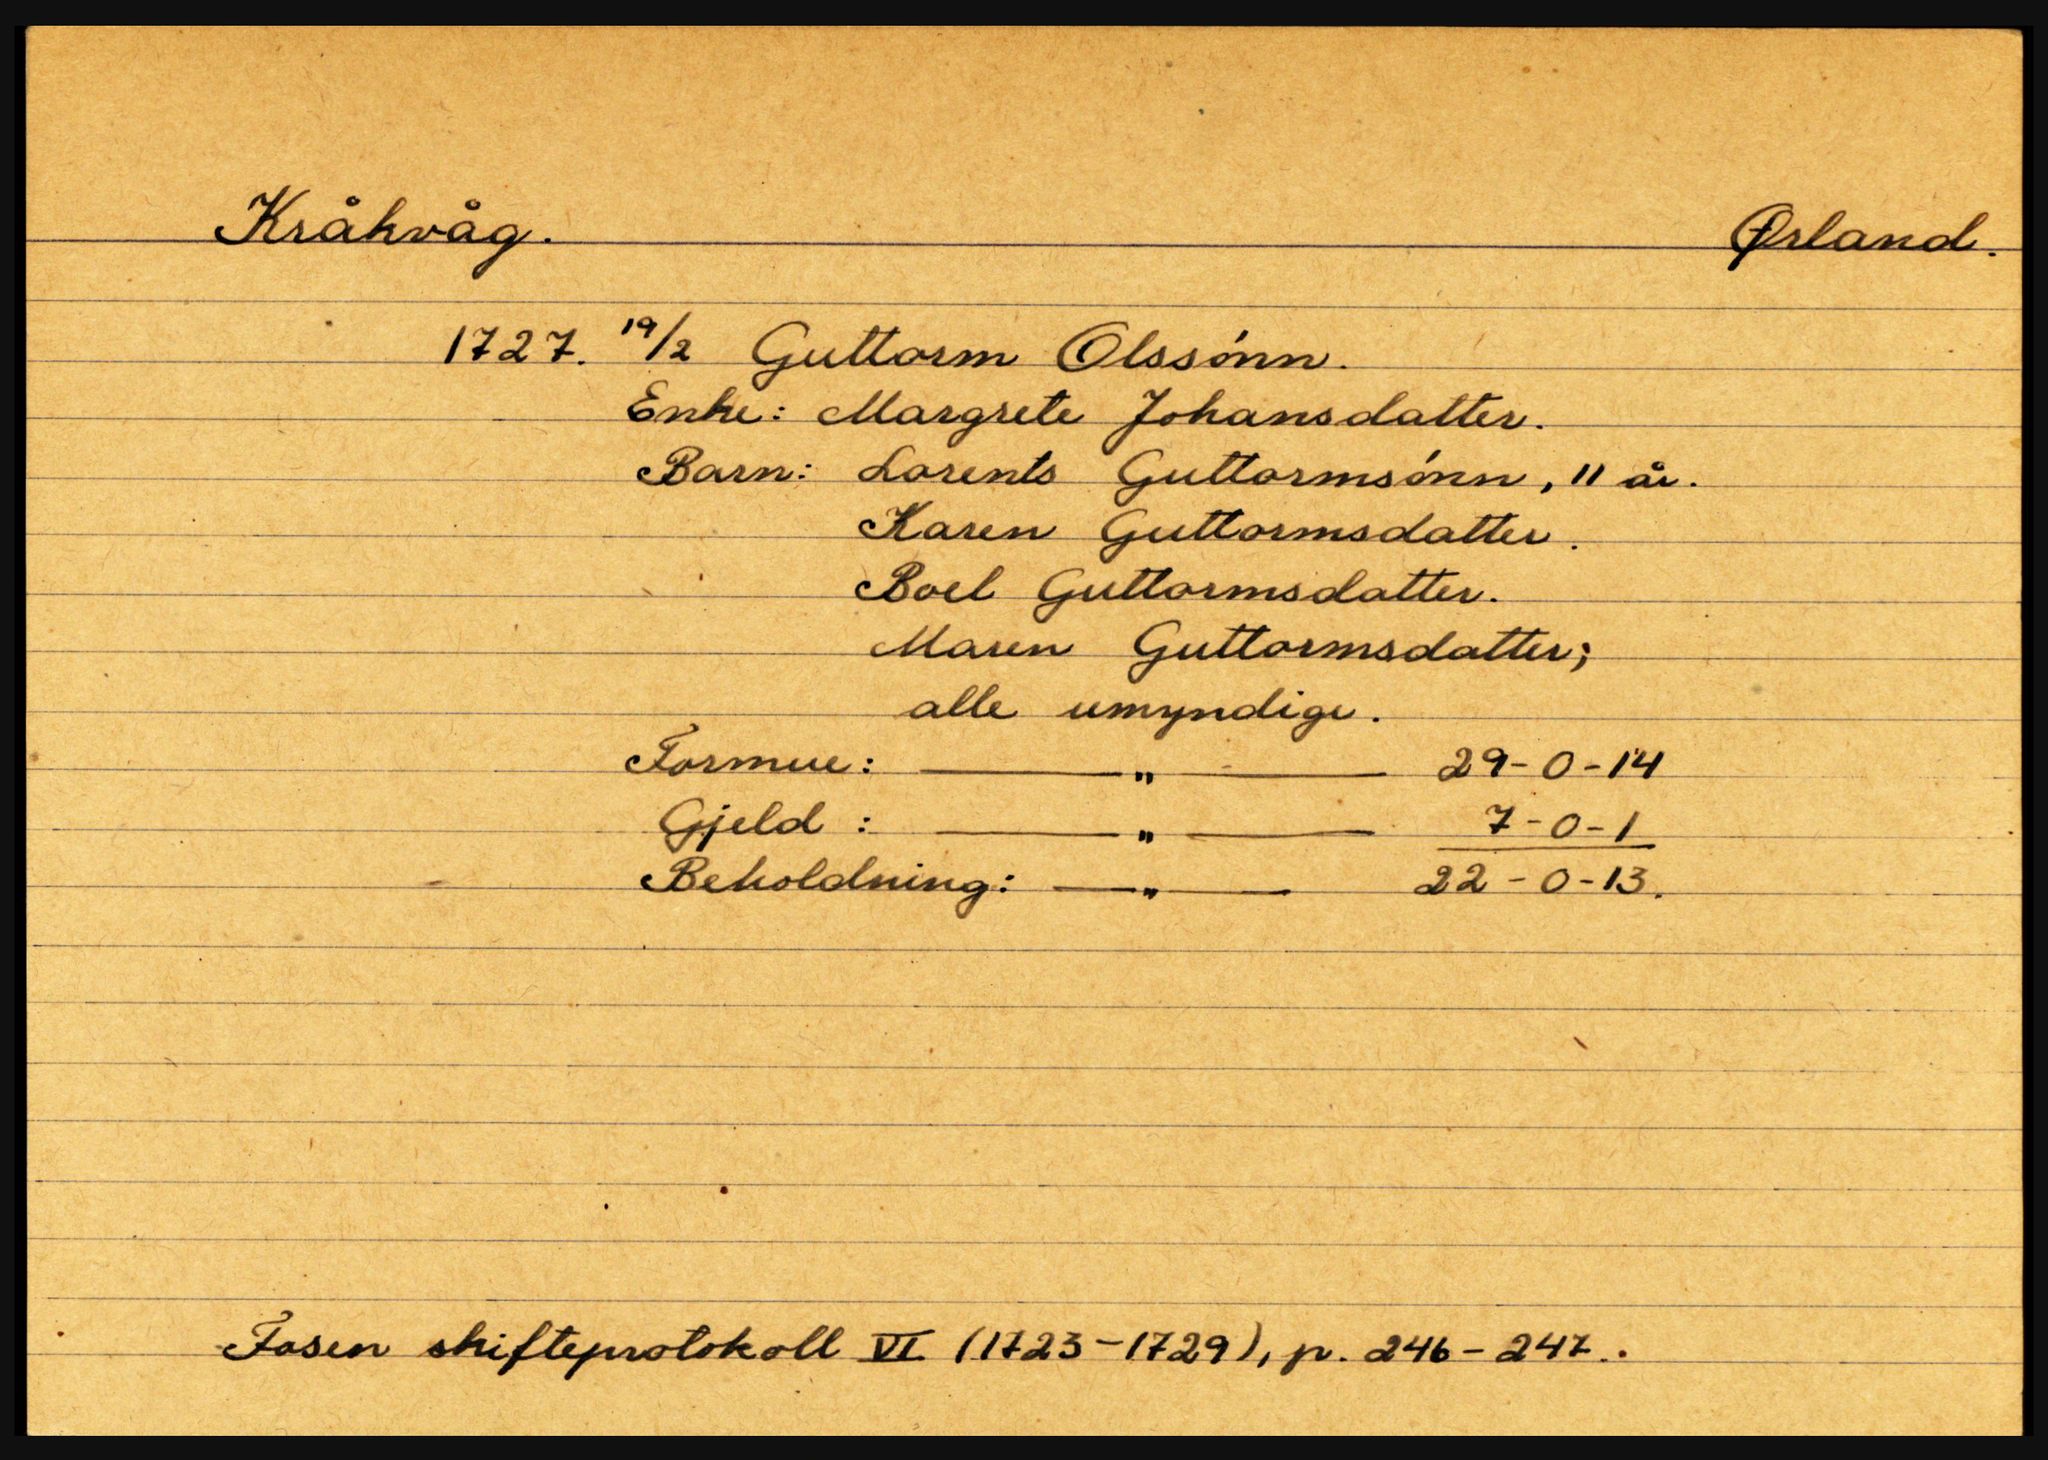 Kråkvåg. Ørland.
1727. 19/2 Guttorm Olssónn.
Enke: Margrete Johansdatter.
Barn: Lorents Guttormsónn, 11 år.
Karen Guttormsdatter.
Boel Guttormsdatter.
Maren Guttormsdatter;
alle umyndige.
Formue: — " — 29-0-14
Gjeld : — " — 7-0-1
Beholdning: — " — 22-0-13.
Fosen skifteprotokoll VI (1723-1729), p. 246-247.